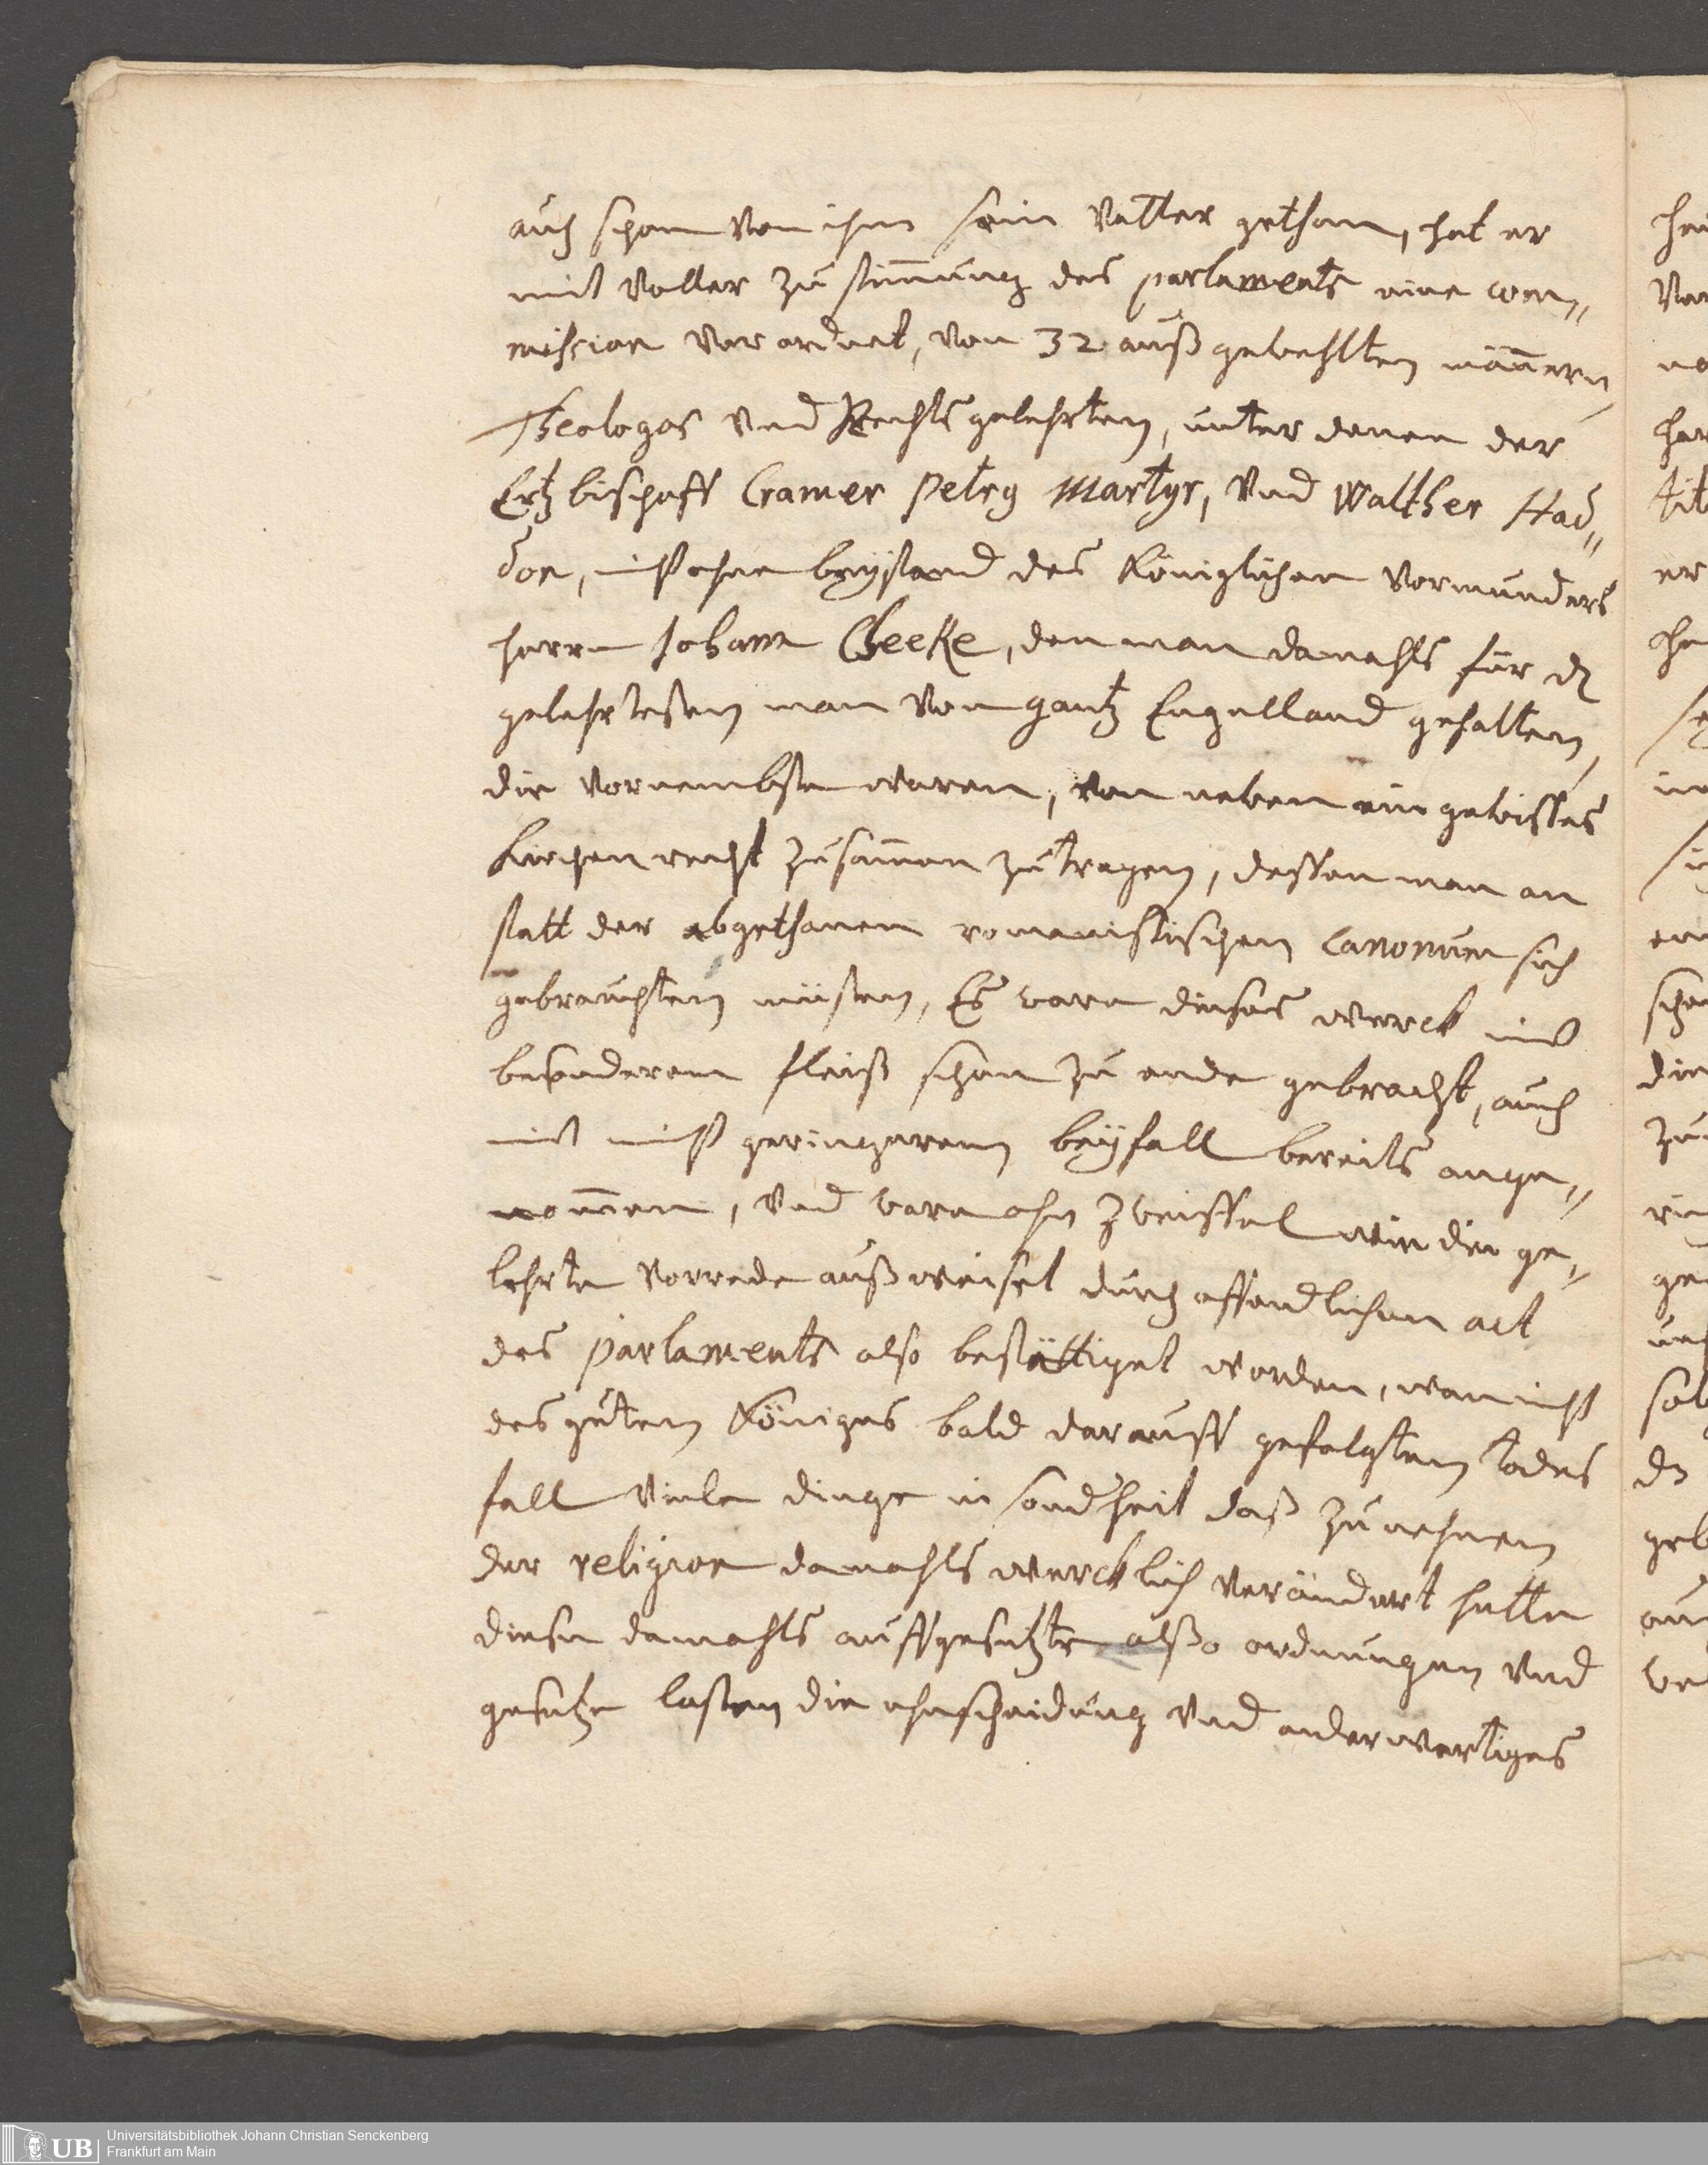 auch schon von ihm sein Vatter gethan, hat er
mit voller zustim̄ung des parlaments eine com„
mission verordnet, von 32 außgewehlten män̄ern,
Theologos und Rechtsgelehrten, unter denen der
Ertzbischoff Cramer Petrg Martyr, Und Walther Had„
don, nicht ohne beystand des Königlichen Vormunders
herrn Johann Cheeke, den man damahls für dz
gelehrtesten man von gantz Engelland gehalten,
die vornembste waren, von neben ein gewisses
Kirchenrecht zusam̄en zutragen, dessen man an
statt der abgethanen romanistischen Canonum sich
gebrauchten müsten, Es ware dieses werck mit
besonderem fleiß schon zu ende gebracht, auch
mit nicht geringerem beyfall bereits ange„
nom̄en, Und ware ohn zweiffel wie die ge„
lehrte Vorrede außweiset durch offendlichen act
des Parlaments also bestättiget worden, wan nicht
des guten Königes bald darauff gefolgten todes
fall viele dinge in sondheit daß zunehmen
der religion damahls wercklich verändert hette
diese damahls auffgesetzte alßo ordnungen Und
gesetze lasten die ehescheidung Und anderwertiges
Universitätsbibliothek Johann Christian Senckenberg
Frankfurt am Main